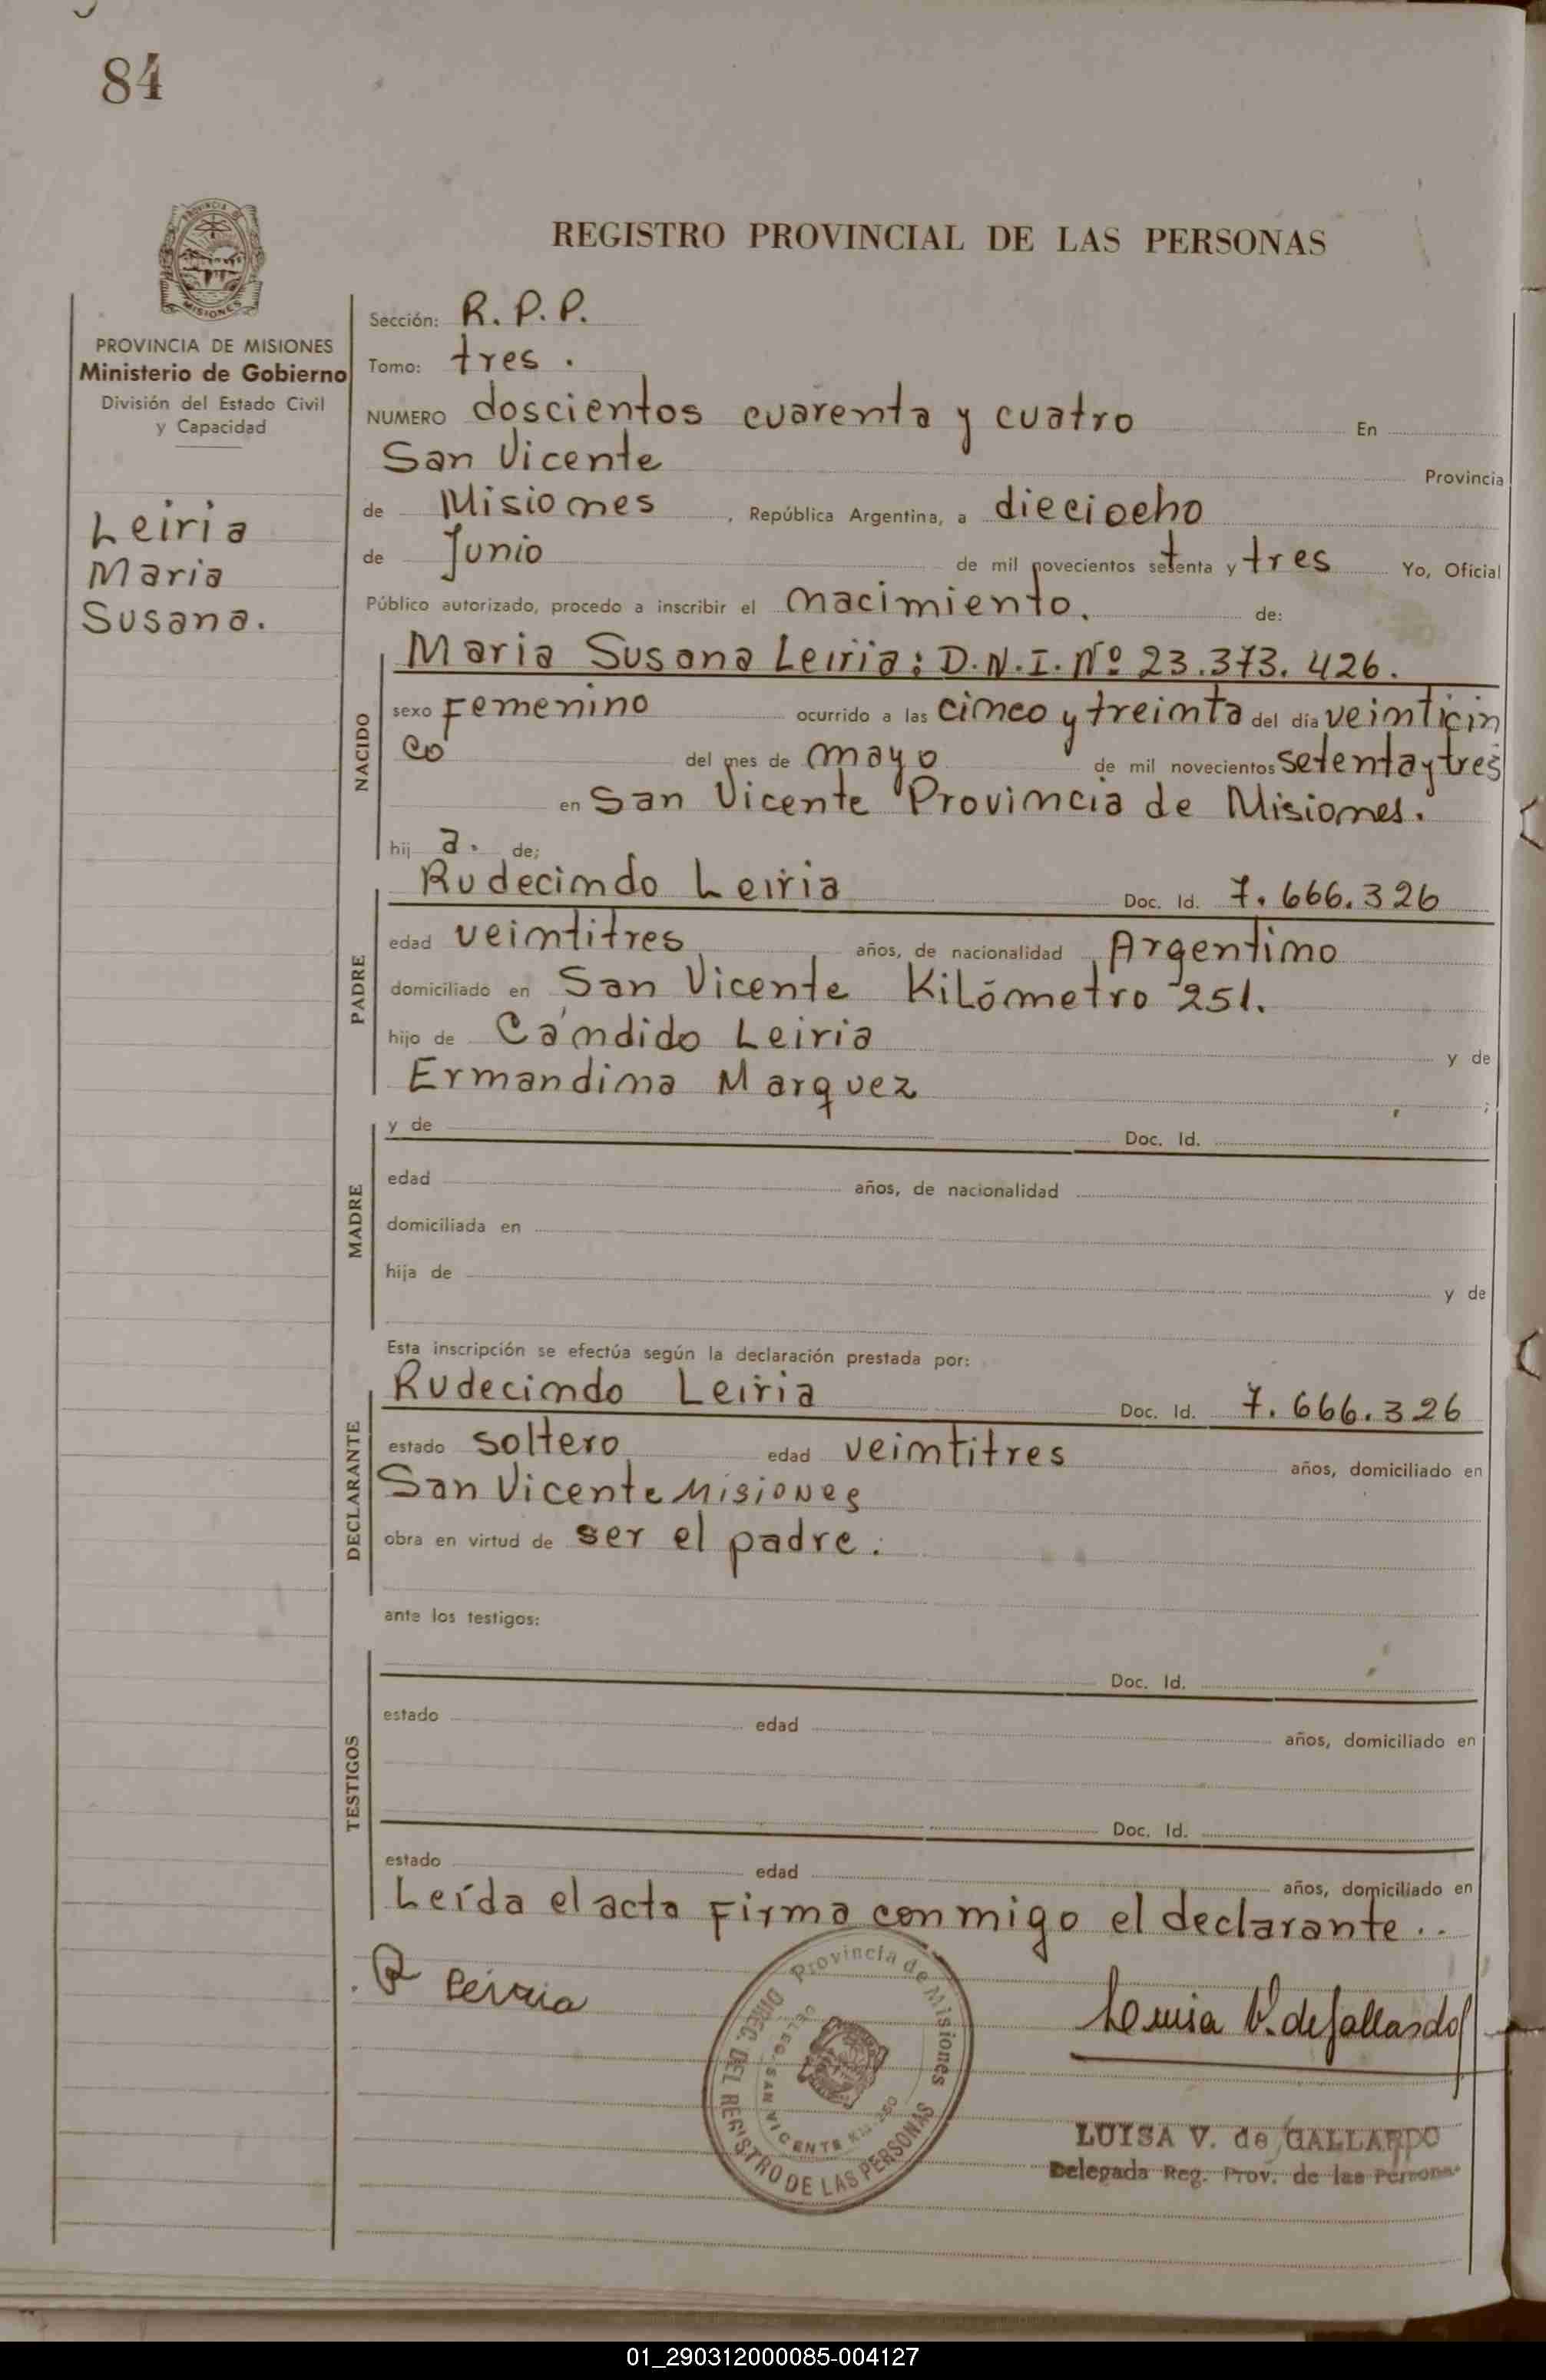 84
REGISTRO PROVINCIAL DE LAS PERSONAS
PROVINCIA DE MISIONES
Ministerio de Gobierno
División del Estado Civil
y Capacidad
Leiria
Maria
Susana.
Sección: R. P. P.
Tomo: tres.
NUMERO doscientos cuarenta y cuatro En
San Vicente Provincia
de Misiones, República Argentina, a dieciocho
de Junio de mil novecientos setenta y tres Yo, Oficial
Público autorizado, procedo a inscribir el nacimiento. de:
NACIDO
Maria Susana Leiria: D.N.I. Nº 23.373.426.
sexo Femenino ocurrido a las cinco y treinta del día veinticin
co del mes de mayo de mil novecientos setenta y tres
en San Vicente Provincia de Misiones.
hij a. de;
PADRE
Rudecindo Leiria Doc. Id. 7.666.326
edad veintitres años, de nacionalidad Argentino
domiciliado en San Vicente Kilómetro 251.
hijo de Cándido Leiria y de
Ermandina Marquez ;
MADRE
y de Doc. Id.
edad años, de nacionalidad
domiciliada en
hija de y de
Esta inscripción se efectúa según la declaración prestada por:
DECLARANTE
Rudecindo Leiria Doc. Id. 7.666.326
estado soltero edad veintitres años, domiciliado en
San Vicente Misiones
obra en virtud de ser el padre.
ante los testigos:
TESTIGOS
Doc. Id.
estado edad años, domiciliado en
Doc. Id.
estado edad años, domiciliado en
Leída el acta Firma conmigo el declarante..
R Leiria
Luisa V. de Gallardo
Provincia de Misiones
DIREC. DEL REGISTRO DE LAS PERSONAS
DELEG. SAN VICENTE KM. 250
LUISA V. de GALLARDO
Delegada Reg. Prov. de las Personas
01_290312000085-004127